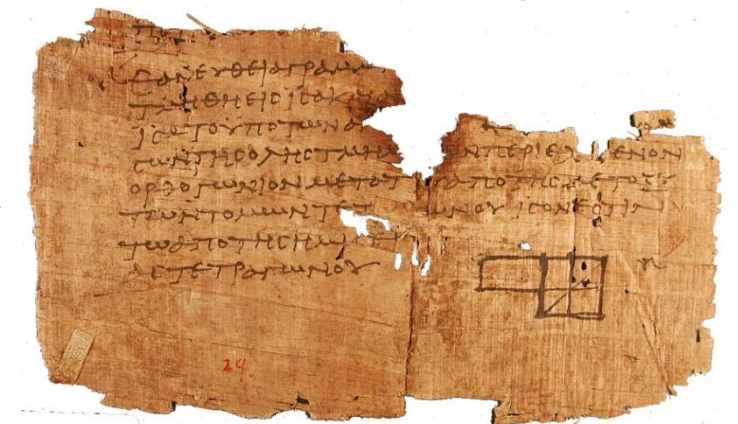 ΕΑΝ ΕΥΘΕΙΑ ΓΡΑΜΜ
ΤΜΗΘΗ ΕΙϹ ΙϹΑ Κ
ΙϹΑ ΤΟ ΥΠΟ ΤΩΝ ΑΝ
ϹΩΝ ΤΗϹ ΟΛΗϹ ΤΜΗ ΩΝ ΠΕΡΙΕΧ ΜΕΝΟΝ
ΟΡΘΟΓΩΝΙΟΝ ΜΕΤΑ Τ ΑΠΟ ΤΗϹ ΜΕΤΟΞΥ
ΤΩΝ ΤΟΜΩΝ ΤΕΤ ΩΝΟΥ ΙϹΟΝ ΕϹΤΙΝ
ΤΩ ΑΠΟ ΤΗϹ ΗΜΙϹΕΙ
ΑϹ ΤΕΤΡΑΓΩΝΟΥ
29